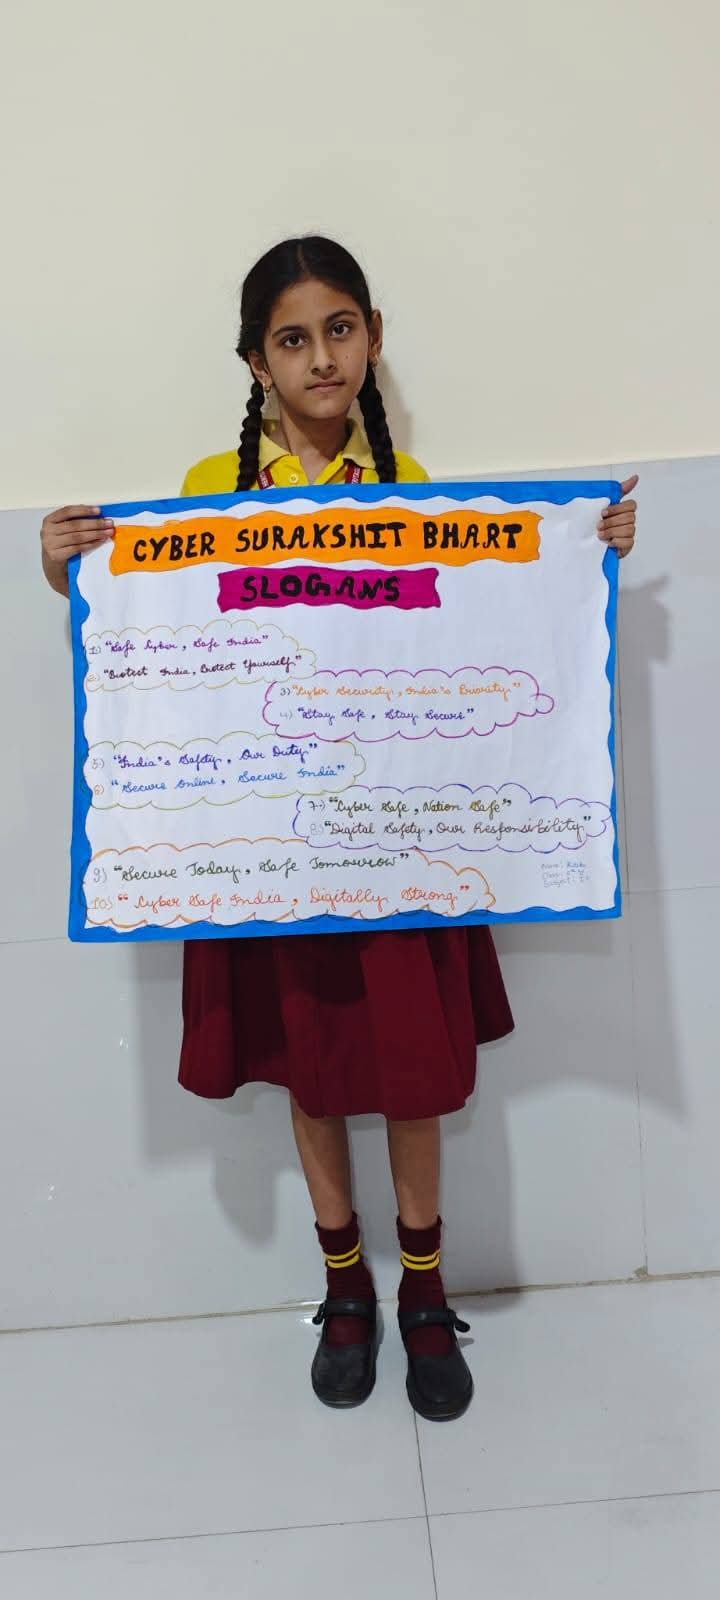 CYBER SURAKSHIT BHART
SLOGANS
1) "Safe Cyber, Safe India"
2) "Protect India, Protect Yourself"
3) "Cyber Security, India's Priority"
4) "Stay Safe, Stay Secure"
5) "India's Safety, Our Duty"
6) "Secure Online, Secure India"
7) "Cyber Safe, Nation Safe"
8) "Digital Safety, Our Responsibility"
9) "Secure Today, Safe Tomorrow"
10) "Cyber Safe India, Digitally Strong"
Name:
Class:
Subject: